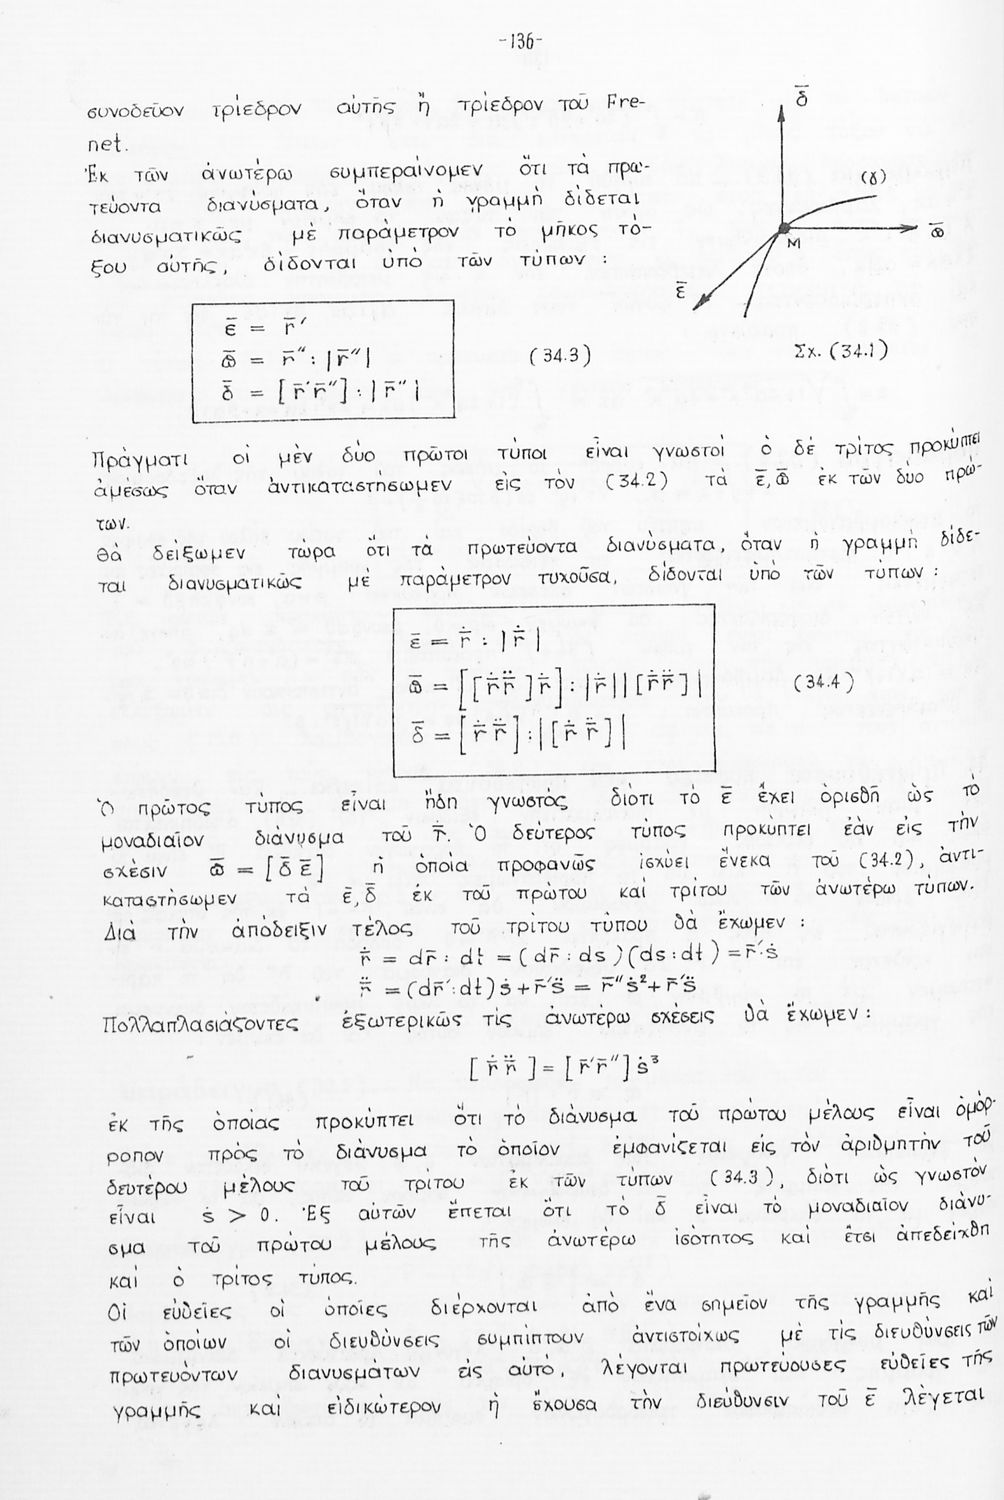 -136-
συνοδεῦον τρίεδρον αὐτῆς ἤ τρίεδρον τοῦ Fre-
net.
Ἐκ τῶν ἀνωτέρω συμπεραίνομεν ὅτι τὰ πρω-
τεύοντα διανύσματα, ὅταν ἡ γραμμὴ δίδεται
διανυσματικῶς μὲ παράμετρον τὸ μῆκος τό-
ξου αὐτῆς, δίδονται ὑπὸ τῶν τύπων :
δ̄
(γ)
ϖ̄
M
ε̄
Σχ. (34.1)
ε̄ = r̄′
ϖ̄ = r̄″ : |r̄″|
δ̄ = [r̄′r̄″] : |r̄″|
(34.3)
Πράγματι οἱ μὲν δύο πρῶτοι τύποι εἶναι γνωστοί ὁ δέ τρίτος προκύπτει
ἀμέσως ὅταν ἀντικαταστήσωμεν εἰς τὸν (34.2) τὰ ε̄, ϖ̄ ἐκ τῶν δύο πρώ-
των.
Θὰ δείξωμεν τώρα ὅτι τὰ πρωτεύοντα διανύσματα, ὅταν ἡ γραμμὴ δίδε-
ται διανυσματικῶς μὲ παράμετρον τυχοῦσα, δίδονται ὑπὸ τῶν τύπων :
ε̄ = ṙ̄ : |ṙ̄|
ϖ̄ = [[ṙ̄r̈̄]ṙ̄] : |ṙ̄||[ṙ̄r̈̄]|
δ̄ = [ṙ̄r̈̄] : |[ṙ̄r̈̄]|
(34.4)
Ὁ πρῶτος τύπος εἶναι ἤδη γνωστός διότι τὸ ε̄ ἔχει ὁρισθῆ ὡς τὸ
μοναδιαῖον διάνυσμα τοῦ ṙ̄. Ὁ δεύτερος τύπος προκύπτει ἐάν εἰς τὴν
σχέσιν ϖ̄ = [δ̄ ε̄] ἡ ὁποία προφανῶς ἰσχύει ἕνεκα τοῦ (34.2), ἀντι-
καταστήσωμεν τὰ ε̄, δ̄ ἐκ τοῦ πρώτου καὶ τρίτου τῶν ἀνωτέρω τύπων.
Διὰ τὴν ἀπόδειξιν τέλος τοῦ τρίτου τύπου θὰ ἔχωμεν :
ṙ̄ = dr̄ : dt = (dr̄ : ds)(ds : dt) = r̄′·ṡ
r̈̄ = (dr̄′:dt)ṡ + r̄′s̈ = r̄″ṡ² + r̄′s̈
Πολλαπλασιάζοντες ἐξωτερικῶς τίς ἀνωτέρω σχέσεις θὰ ἔχωμεν :
[ṙ̄r̈̄] = [r̄′r̄″]ṡ³
ἐκ τῆς ὁποίας προκύπτει ὅτι τὸ διάνυσμα τοῦ πρώτου μέλους εἶναι ὁμόρ-
ροπον πρὸς τὸ διάνυσμα τὸ ὁποῖον ἐμφανίζεται εἰς τὸν ἀριθμητὴν τοῦ
δευτέρου μέλους τοῦ τρίτου ἐκ τῶν τύπων (34.3), διότι ὡς γνωστὸν
εἶναι ṡ > 0. Ἐξ αὐτῶν ἕπεται ὅτι τὸ δ̄ εἶναι τὸ μοναδιαῖον διάνυ-
σμα τοῦ πρώτου μέλους τῆς ἀνωτέρω ἰσότητος καὶ ἔτσι ἀπεδείχθη
καὶ ὁ τρίτος τύπος.
Οἱ εὐθεῖες οἱ ὁποίες διέρχονται ἀπὸ ἕνα σημεῖον τῆς γραμμῆς καὶ
τῶν ὁποίων οἱ διευθύνσεις συμπίπτουν ἀντιστοίχως μὲ τὶς διευθύνσεις τῶν
πρωτευόντων διανυσμάτων εἰς αὐτό, λέγονται πρωτεύουσες εὐθεῖες τῆς
γραμμῆς καὶ εἰδικώτερον ἡ ἔχουσα τὴν διεύθυνσιν τοῦ ε̄ λέγεται